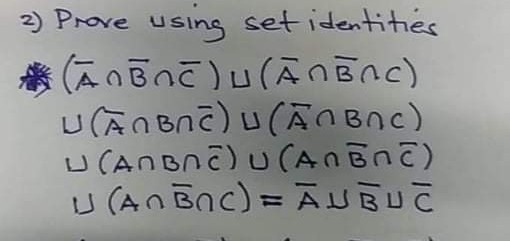 2) Prove using set identities
(A̅ ∩ B̅ ∩ C̅) ∪ (A̅ ∩ B̅ ∩ C)
∪ (A̅ ∩ B ∩ C̅) ∪ (A̅ ∩ B ∩ C)
∪ (A ∩ B ∩ C̅) ∪ (A ∩ B̅ ∩ C̅)
∪ (A ∩ B̅ ∩ C) = A̅ ∪ B̅ ∪ C̅